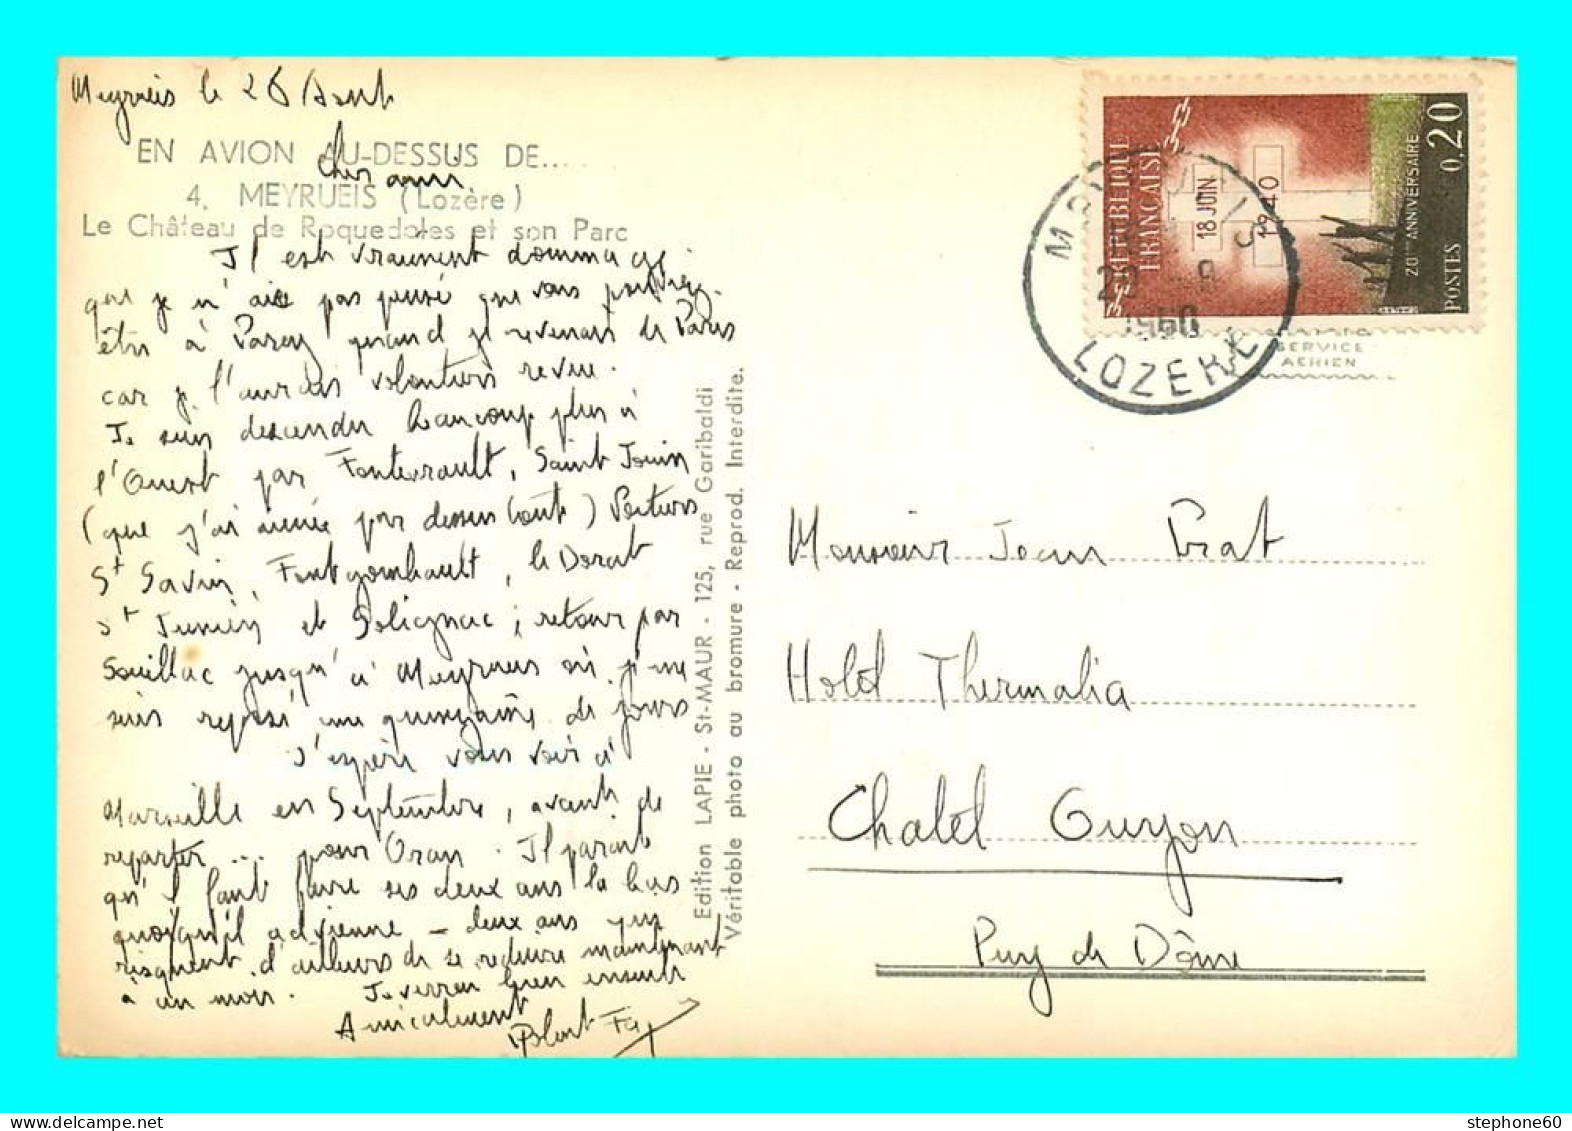 Meyrueis le 26 Aout
EN AVION AU-DESSUS DE......
Cher ami
4. MEYRUEIS (Lozère)
Le Château de Roquedoles et son Parc
Il est vraiment dommage
que je n'aie pas pensé que vous pouviez
être à Paray quand je revenais de Paris
car je l'aurais volontiers revue.
Je suis descendu beaucoup plus à
l'Ouest par Fontevrault, Saint Jouin
(que j'ai aimée par dessus tout) Poitiers
St Savin, Fontgombault, le Dorat
St Junien et Solignac ; retour par
Souillac jusqu'à Meyrueis où je me
suis reposé une quinzaine de jours
J'espère vous voir à
Marseille en Septembre, avant de
repartir ... pour Oran. Il parait
qu'il faut faire ses deux ans là bas
quoiqu'il advienne - deux ans qui
risquent d'ailleurs de se réduire maintenant
à un mois. Je verrai bien ensuite
Amicalement
Edition LAPIE - St-MAUR - 125, rue Garibaldi
Véritable photo au bromure - Reprod. Interdite.
RÉPUBLIQUE
FRANÇAISE
18 JUIN
1940
20ème ANNIVERSAIRE
POSTES 0,20
LOZERE
1960
SERVICE
AÉRIEN
Monsieur Jean Prat
Hotel Thermalia
Chatel Guyon
Puy de Dôme
stephone60